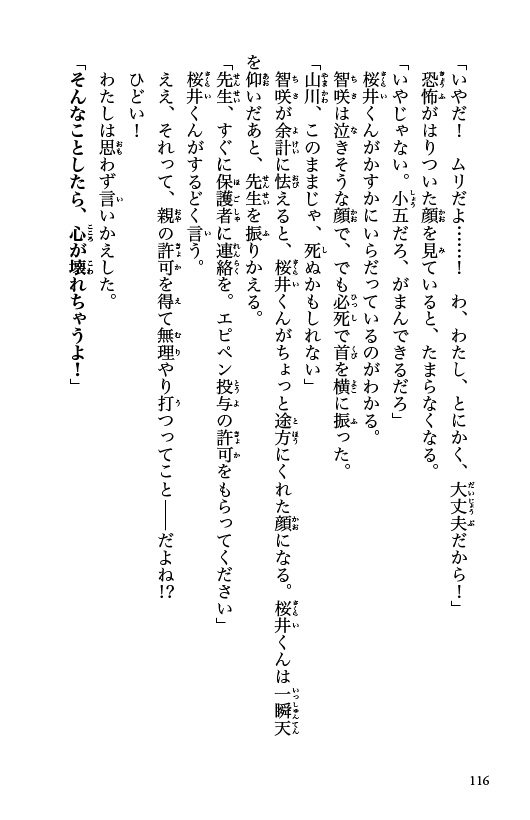 「いやだ！　ムリだよ……！　わ、わたし、とにかく、大丈夫だから！」
恐怖がはりついた顔を見ていると、たまらなくなる。
「いやじゃない。小五だろ、がまんできるだろ」
桜井くんがかすかにいらだっているのがわかる。
智咲は泣きそうな顔で、でも必死で首を横に振った。
「山川、このままじゃ、死ぬかもしれない」
智咲が余計に怯えると、桜井くんがちょっと途方にくれた顔になる。桜井くんは一瞬天
を仰いだあと、先生を振りかえる。
「先生、すぐに保護者に連絡を。エピペン投与の許可をもらってください」
桜井くんがするどく言う。
ええ、それって、親の許可を得て無理やり打つってこと――だよね!?
ひどい！
わたしは思わず言いかえした。
「そんなことしたら、心が壊れちゃうよ！」
116